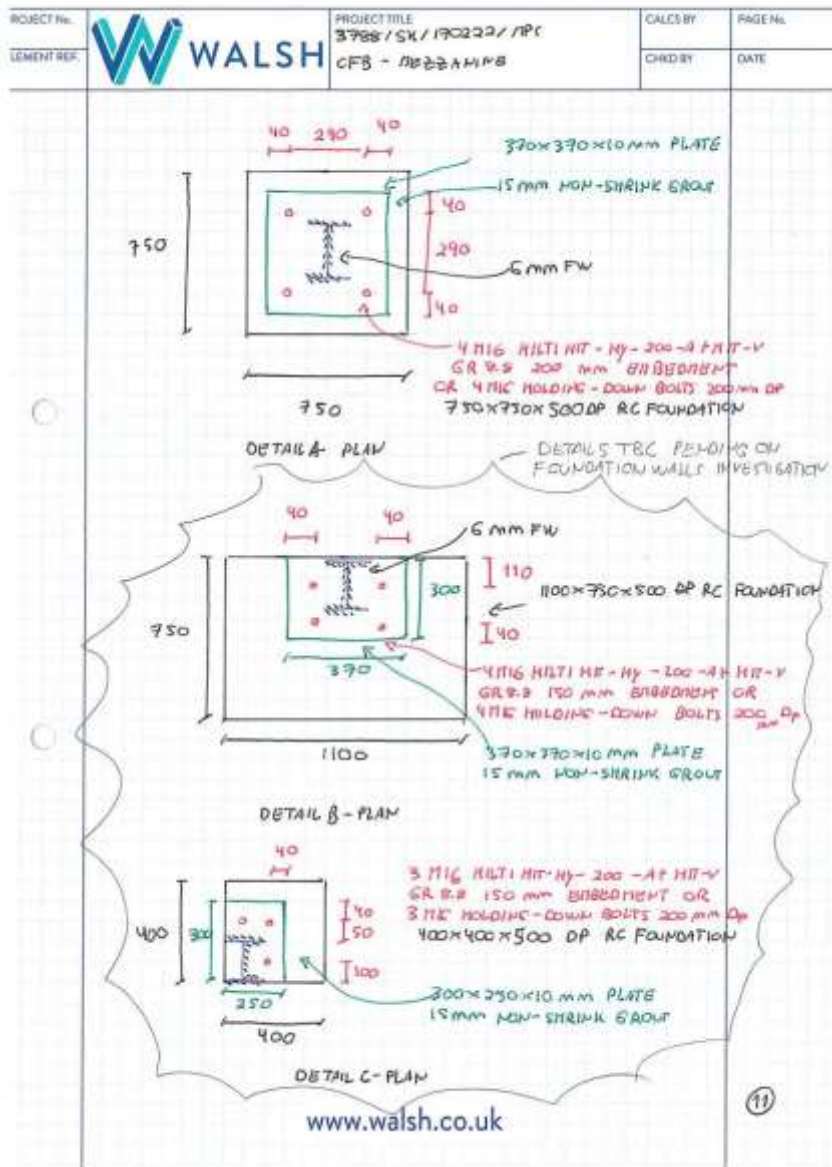 PROJECT No.
ELEMENT REF.
WALSH
PROJECT TITLE
3788/SK/170222/MPC
CFB - MEZZANINE
CALCS BY
PAGE No.
CHKD BY
DATE
40 290 40
370x370x10mm PLATE
15mm NON-SHRINK GROUT
40
750
290
6mm FW
40
4 M16 HILTI HIT-HY-200-A+HIT-V
GR 8.8 200 mm EMBEDMENT
OR 4 M16 HOLDING-DOWN BOLTS 200mm DP
750
750x750x500DP RC FOUNDATION
DETAIL A PLAN
DETAILS TBC PENDING ON
FOUNDATION WALLS INVESTIGATION
40 40
6mm FW
110
300
1100x750x500 DP RC FOUNDATION
750
40
370
4 M16 HILTI HIT-HY-200-A+ HIT-V
GR 8.8 150 mm EMBEDMENT OR
4 M16 HOLDING-DOWN BOLTS 200 mm DP
1100
370x370x10 mm PLATE
15 mm NON-SHRINK GROUT
DETAIL B-PLAN
40
3 M16 HILTI HIT-HY-200-A+ HIT-V
GR 8.8 150 mm EMBEDMENT OR
3 M16 HOLDING-DOWN BOLTS 200 mm DP
400x400x500 DP RC FOUNDATION
400
300
40
50
100
250
300x250x10 mm PLATE
15mm NON-SHRINK GROUT
400
DETAIL C-PLAN
www.walsh.co.uk
11